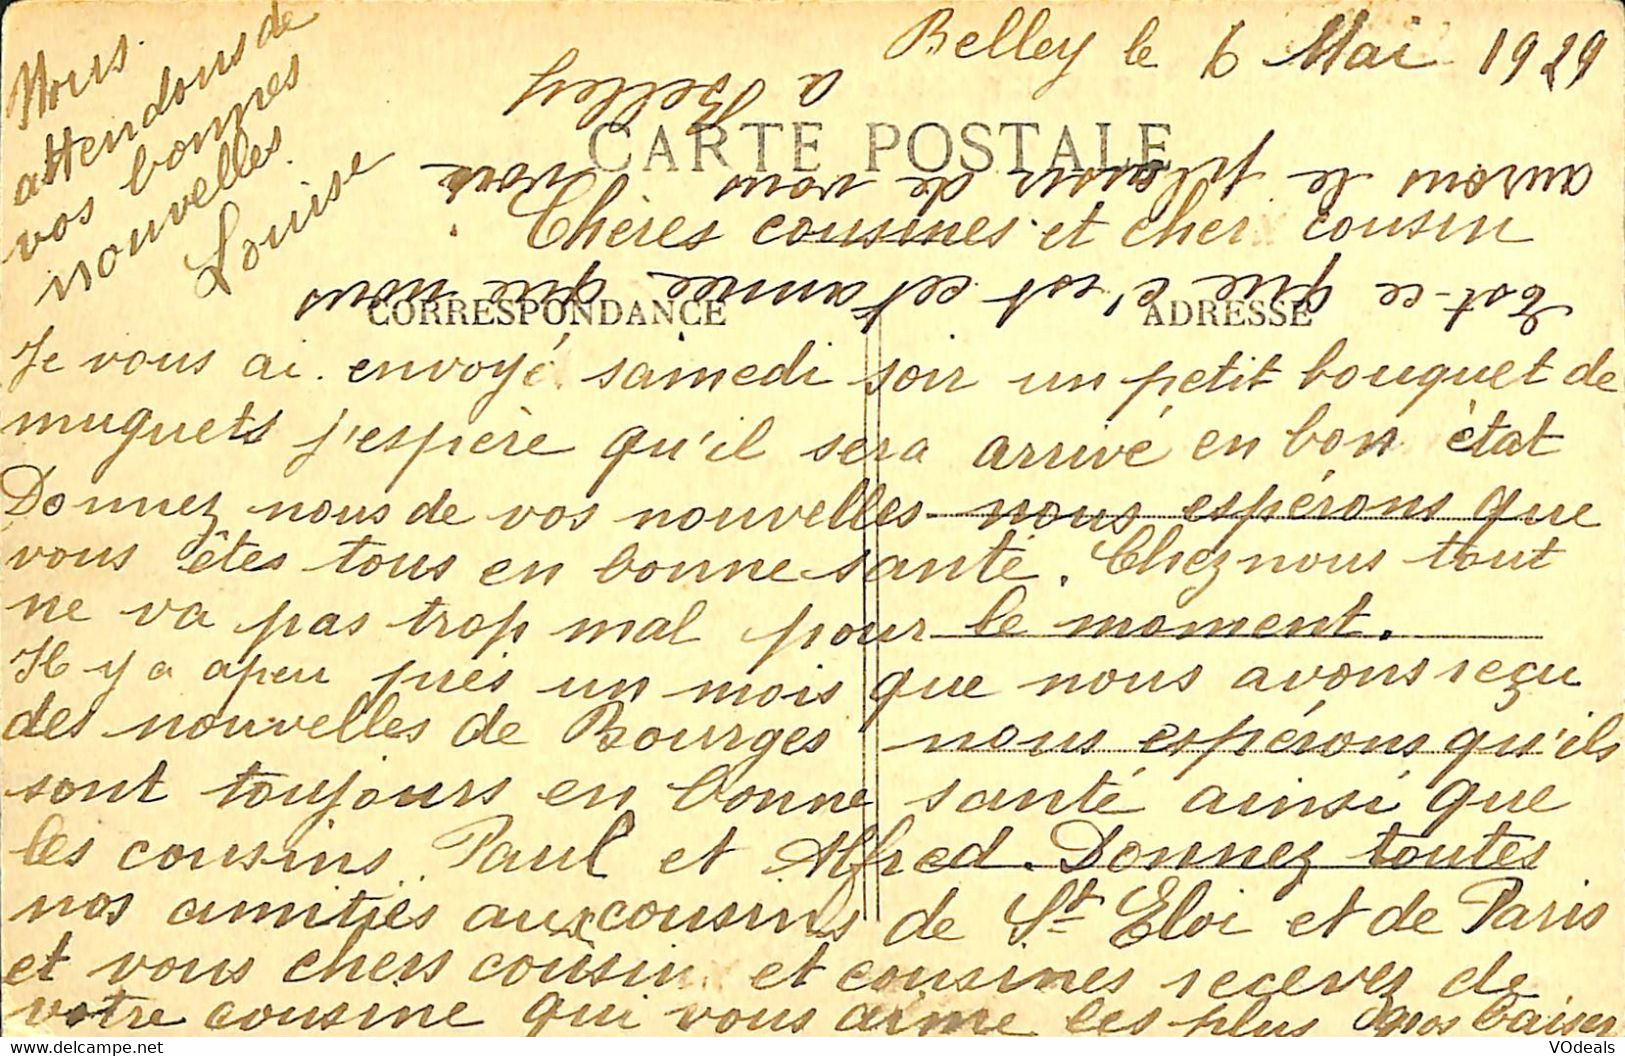 Belley le 6 Mai 1929
CARTE POSTALE
Chères cousines et cher cousin
CORRESPONDANCE
ADRESSE
Je vous ai envoyé samedi soir un petit bouquet de
muguets j'espère qu'il sera arrivé en bon état
Donnez nous de vos nouvelles nous espérons que
vous êtes tous en bonne santé. Chez nous tout
ne va pas trop mal pour le moment.
Il y a apeu près un mois que nous avons reçu
des nouvelles de Bourges nous espérons qu'ils
sont toujours en bonne santé ainsi que
les cousins Paul et Alfred. Donnez toutes
nos amitiés aux cousins de St Eloi et de Paris
et vous chers cousin et cousines recevez de
votre cousine qui vous aime les plus gros baiser
Est-ce que c'est cet année que nous
aurons le plaisir de vous voir
a Belley
Nous
attendons de
vos bonnes
nouvelles.
Louise
VOdeals